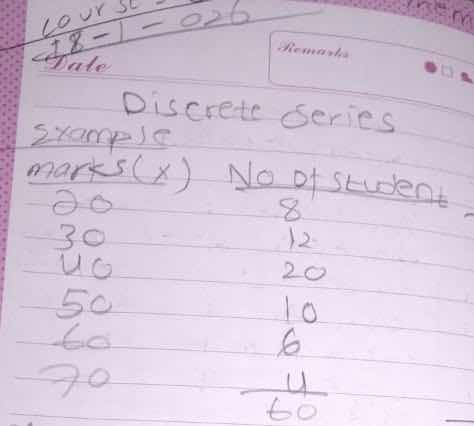 course
18-1-026
Date
Remarks
Discrete Series
Example
marks(x) No of student
20 8
30 12
40 20
50 10
60 6
70 4
60